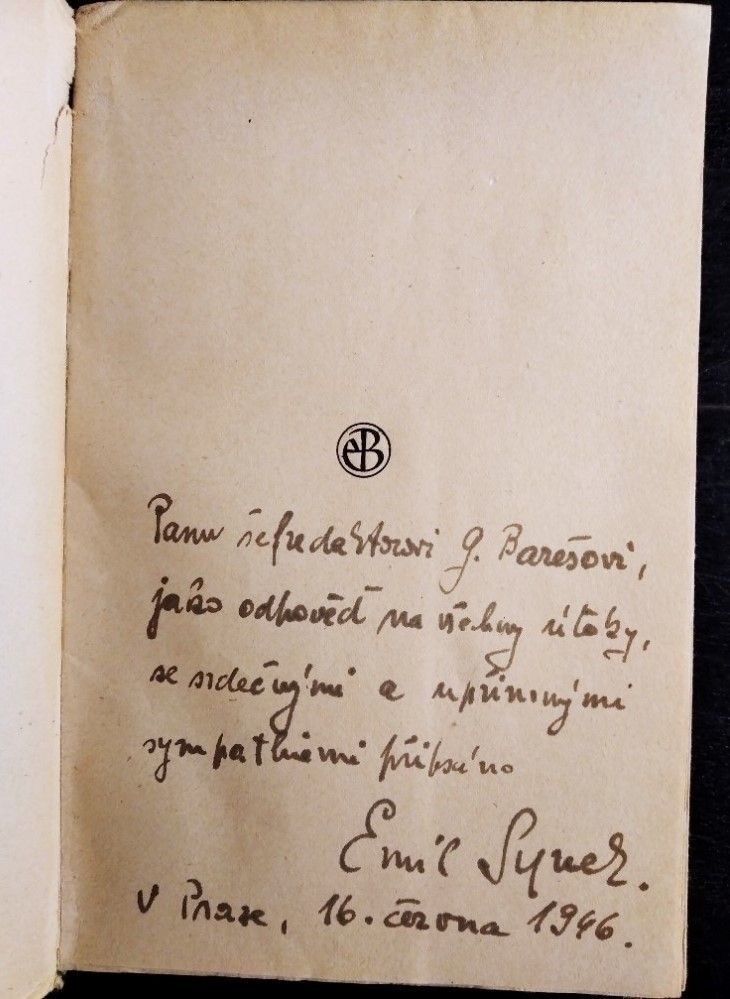 eB
Panu šéfredaktorovi G. Barešovi,
jako odpověď na všechny útoky,
se srdečnými a upřímnými
sympathiemi připsáno
Emil Synek.
V Praze, 16. června 1946.